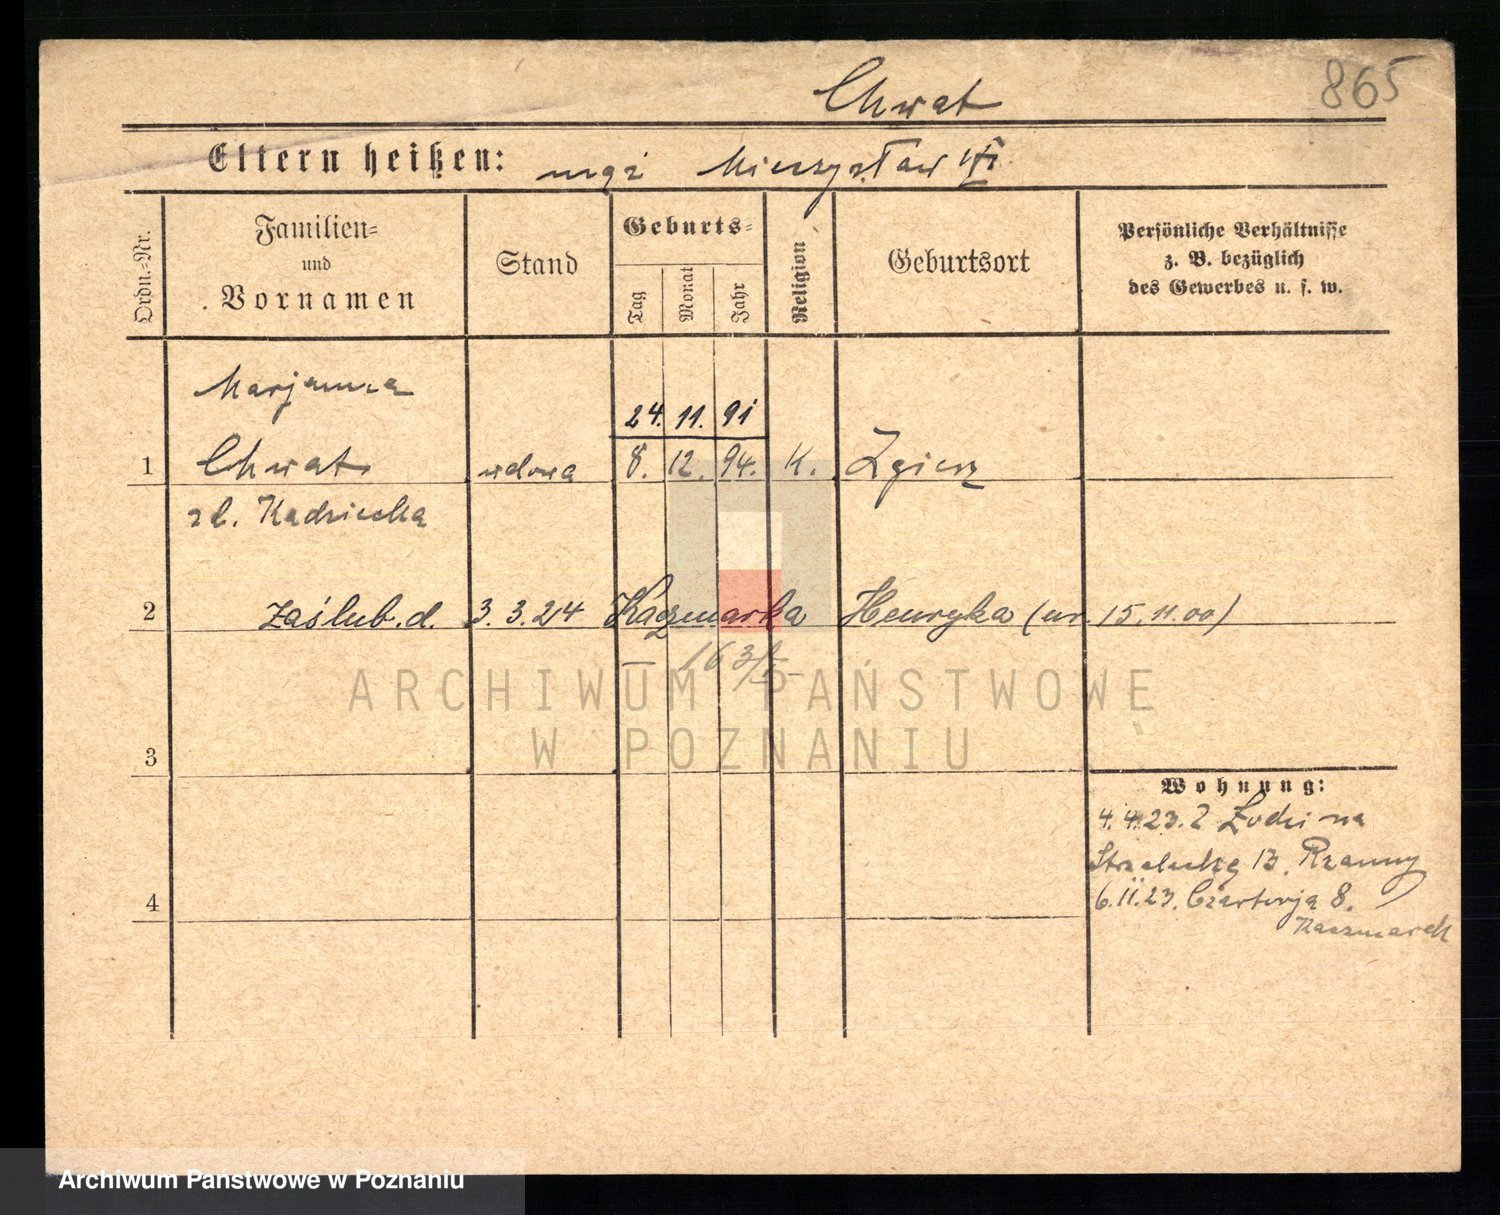 865
Chwat
Eltern heißen: mąż Mieczysław
Ordn.-Nr.
Familien-
und
Vornamen
Stand
Geburts-
Tag
Monat
Jahr
Religion
Geburtsort
Persönliche Verhältnisse
z. B. bezüglich
des Gewerbes u. s. w.
Marjanna
24. 11. 91
1 Chwat wdowa 8. 12. 94. K. Zgierz
2 zaślub. d. 3. 3. 24 Kaczmarka Henryka (ur. 15. 11. 00)
ARCHIWUM PAŃSTWOWE
W POZNANIU
3
Wohnung:
4. 4. 23. z Łodzi na
13.
4
6. II. 23. 8.
Kaczmarek
Archiwum Państwowe w Poznaniu